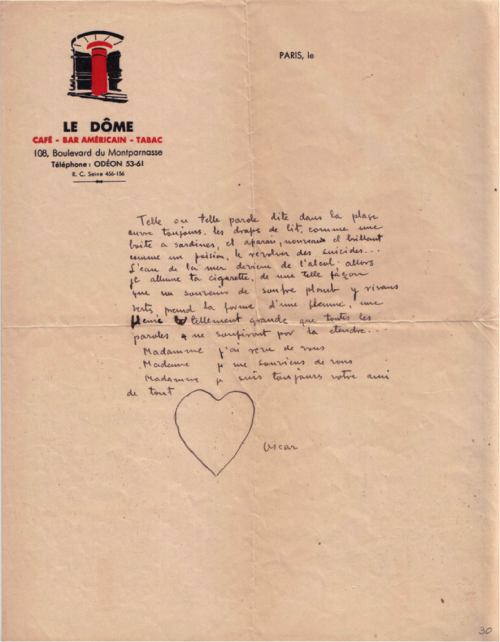 PARIS, le
LE DÔME
CAFÉ - BAR AMÉRICAIN - TABAC
108, Boulevard du Montparnasse
Téléphone : ODÉON 53-61
R. C. Seine 456-156
Telle ou telle parole dite dans la plage
ouvre toujours les draps de lit, comme une
boite a sardines, et nouveau et brillant
comme un poison, le revolver des suicides...
L'eau de la mer devient de l'alcool. allors
je allume ta cigarette, de une telle façon
que un souvenir de soufre plomb y
verts, prend la forme d'une flamme, une
tellement grande que toutes les
paroles ne por la etendre...
Madamme j'ai reve de vous
Madame je me souviens de vous
Madamme je suis tousjours votre ami
de tout
Oscar
30